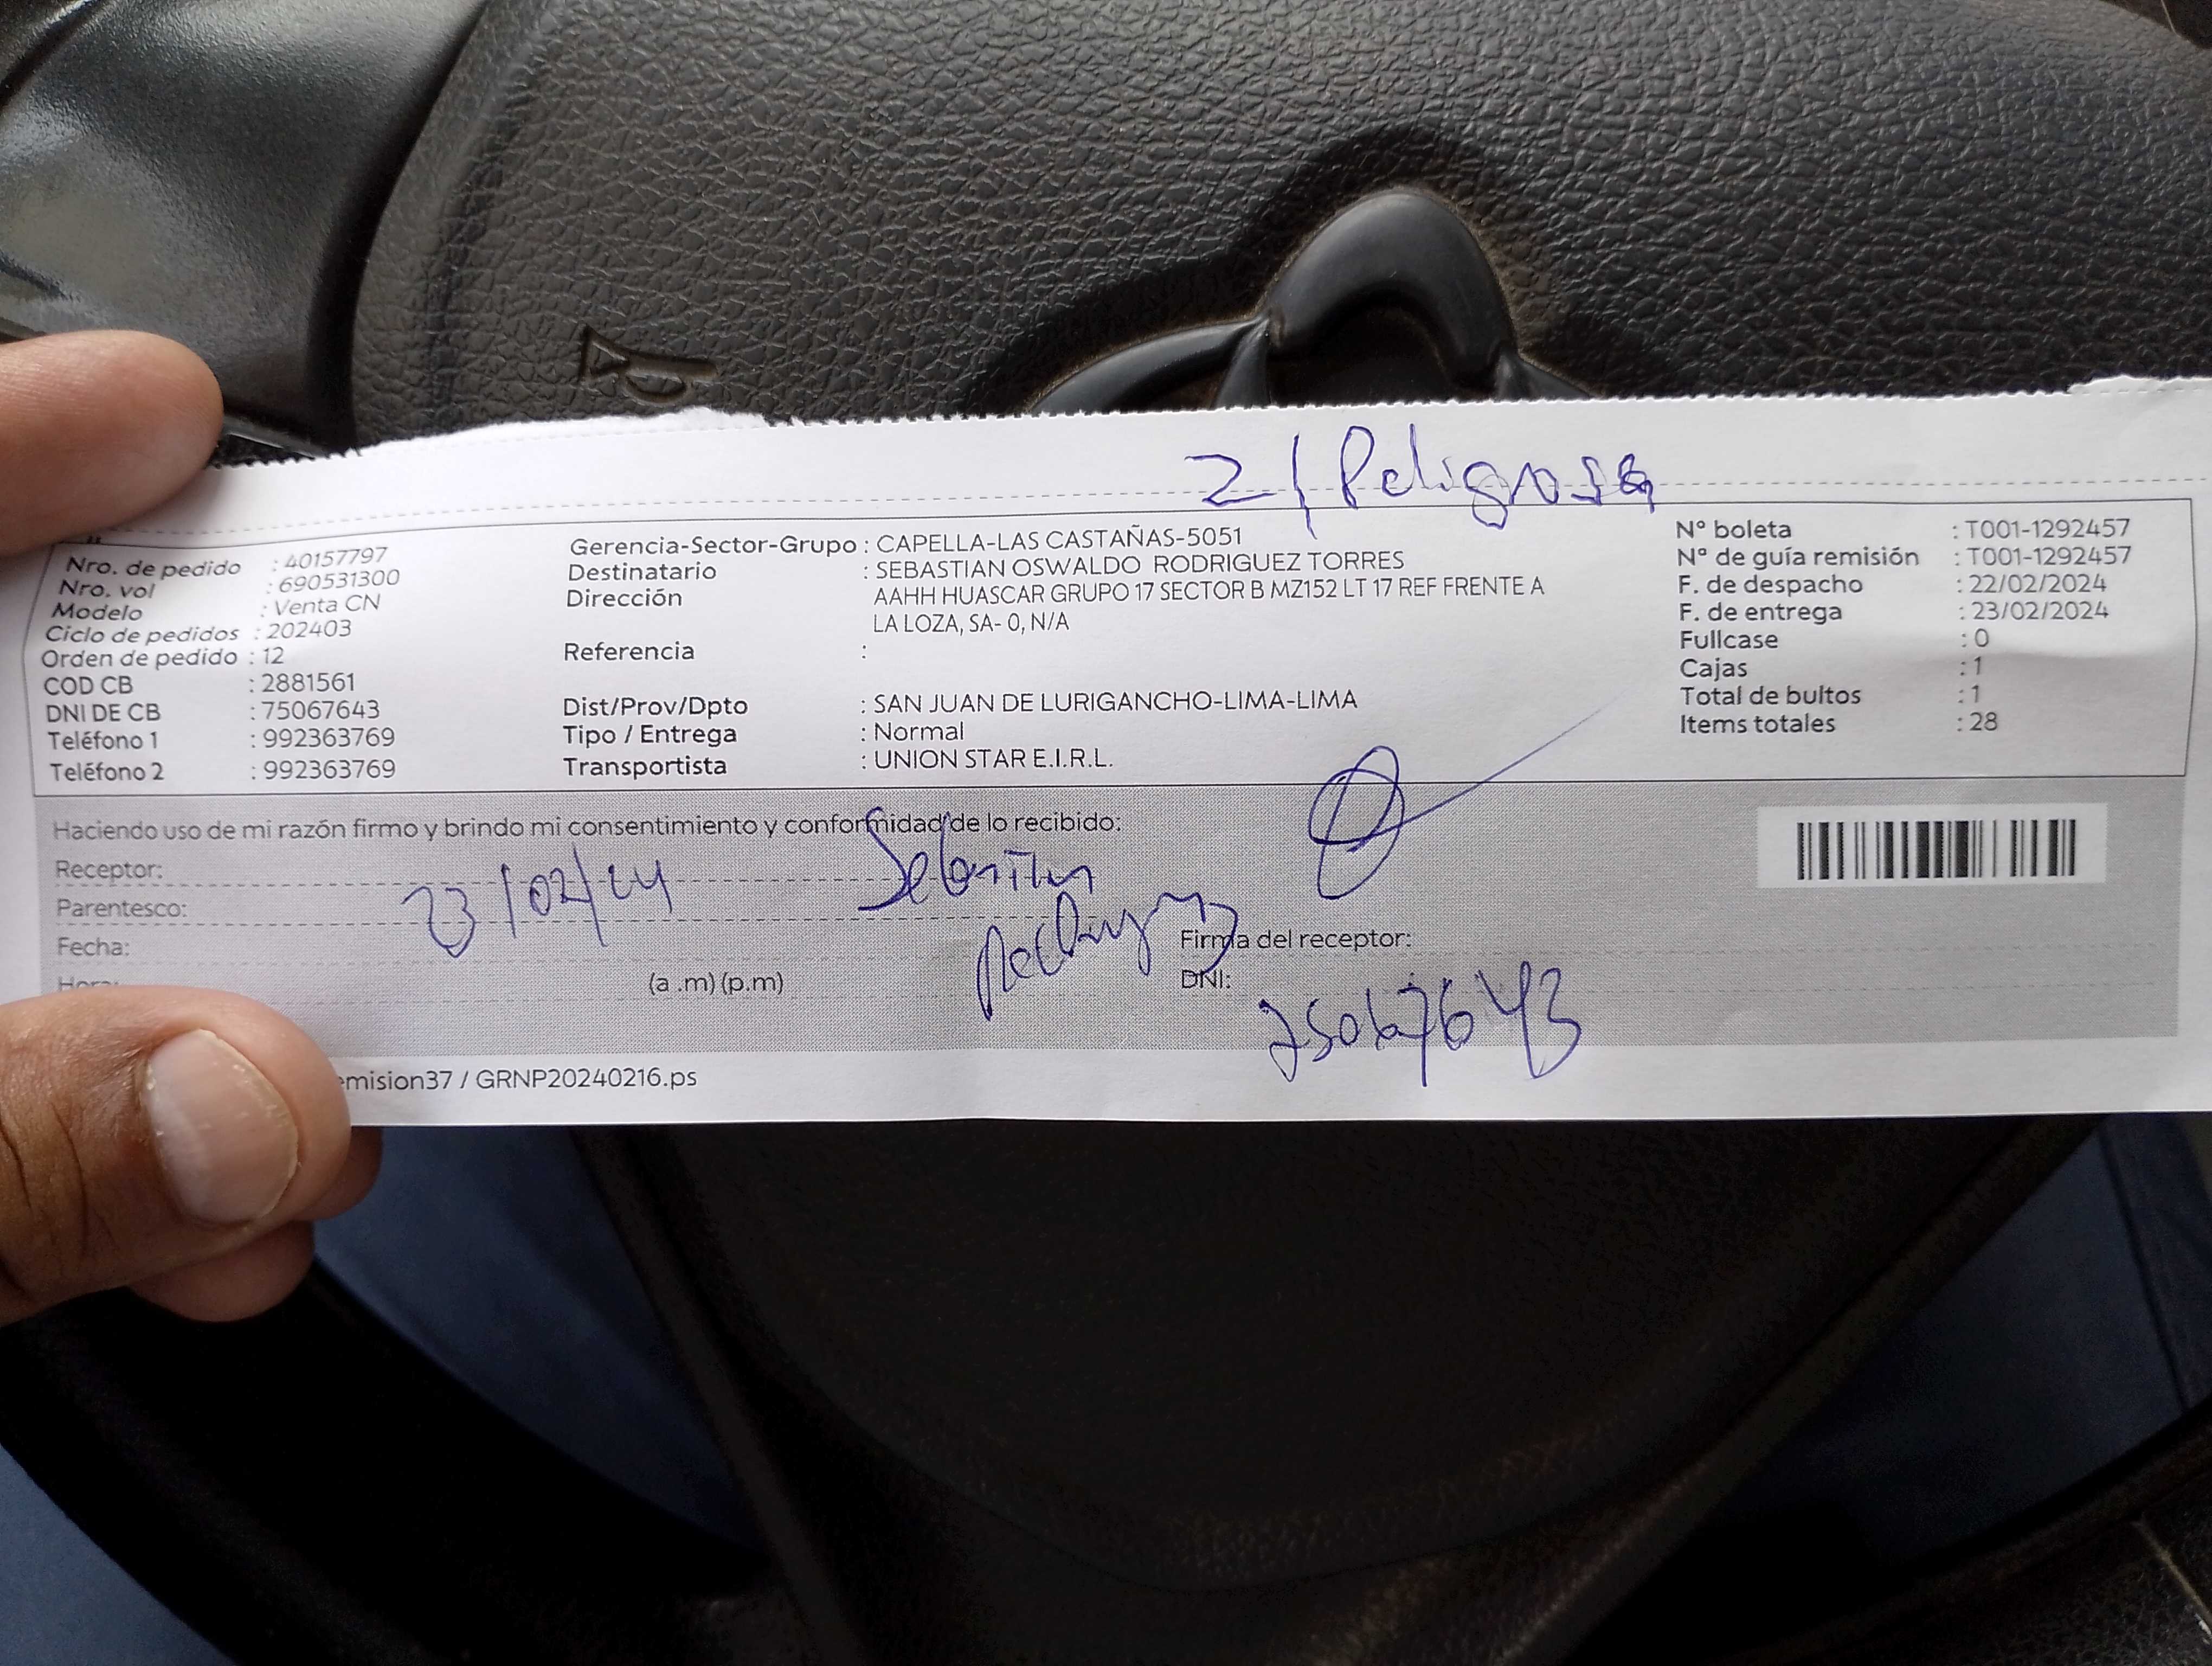 2 / Peligrosa
Nro. de pedido : 40157797
Nro. vol : 690531300
Modelo : Venta CN
Ciclo de pedidos : 202403
Orden de pedido : 12
COD CB : 2881561
DNI DE CB : 75067643
Teléfono 1 : 992363769
Teléfono 2 : 992363769
Gerencia-Sector-Grupo : CAPELLA-LAS CASTAÑAS-5051
Destinatario : SEBASTIAN OSWALDO RODRIGUEZ TORRES
Dirección : AAHH HUASCAR GRUPO 17 SECTOR B MZ152 LT 17 REF FRENTE A
LA LOZA, SA- 0, N/A
Referencia :
Dist/Prov/Dpto : SAN JUAN DE LURIGANCHO-LIMA-LIMA
Tipo / Entrega : Normal
Transportista : UNION STAR E.I.R.L.
N° boleta : T001-1292457
N° de guía remisión : T001-1292457
F. de despacho : 22/02/2024
F. de entrega : 23/02/2024
Fullcase : 0
Cajas : 1
Total de bultos : 1
Items totales : 28
Haciendo uso de mi razón firmo y brindo mi consentimiento y conformidad de lo recibido:
Receptor: Sebastian
Parentesco: 23/02/24
Fecha:
Firma del receptor:
Hora: (a .m) (p.m)
DNI: 75067643
emision37 / GRNP20240216.ps